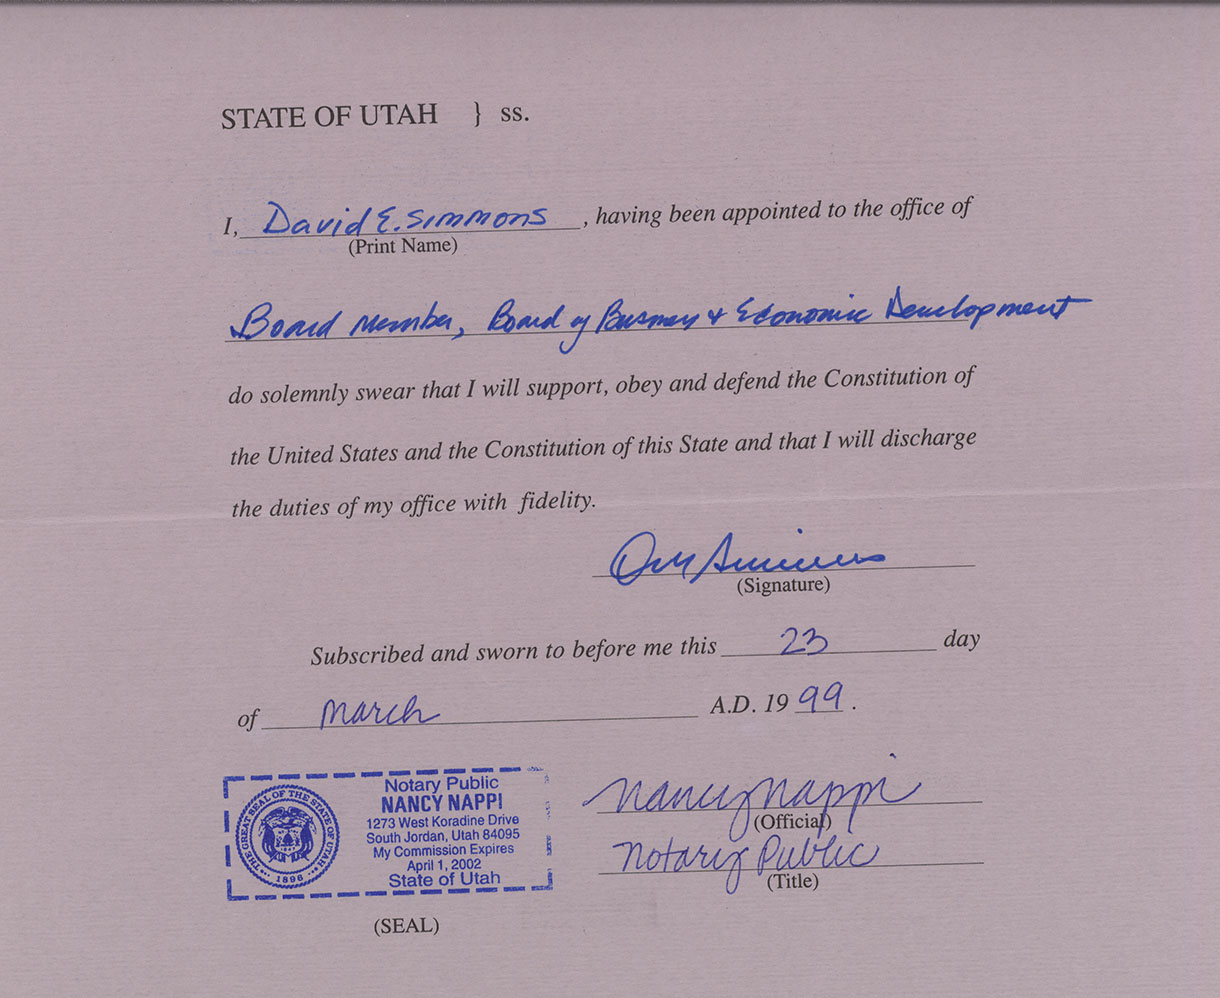 STATE OF UTAH } ss.
I, David E. Simmons, having been appointed to the office of
(Print Name)
Board Member, Board of Business & Economic Development
do solemnly swear that I will support, obey and defend the Constitution of
the United States and the Constitution of this State and that I will discharge
the duties of my office with fidelity.
Simmons
(Signature)
Subscribed and sworn to before me this 23 day
of March A.D. 1999.
THE GREAT SEAL OF THE STATE OF UTAH
1896
Notary Public
NANCY NAPPI
1273 West Koradine Drive
South Jordan, Utah 84095
My Commission Expires
April 1, 2002
State of Utah
(SEAL)
Nancy Nappi
(Official)
Notary Public
(Title)